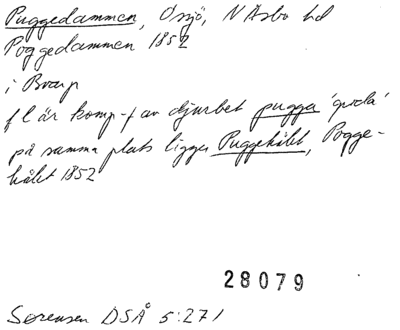 Puggedammen, Osjö, N Åsbo hd
Poggedammen 1852
i Brarp
f l är komp-f av djurbet pugga 'groda'
på samma plats ligger Puggehålet, Pogge-
hålet 1852
28079
Sørensen DSÅ 5:271